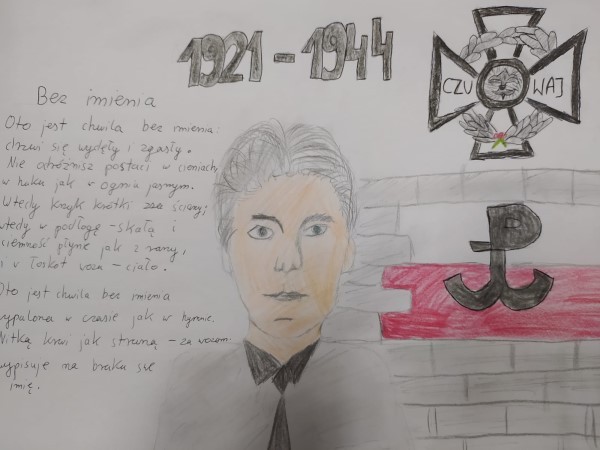 1921-1944
CZUWAJ
Bez imienia
Oto jest chwila bez imienia:
drzwi się wydęły i zgasły.
Nie odróżnisz postaci w cieniach,
w huku jak w ogniu jasnym.
Wtedy krzyk krótki zza ściany;
wtedy w podłogę - skałą i
ciemność płynie jak z rany,
i w łoskot wozu - ciało.
Oto jest chwila bez imienia
wypalona w czasie jak w hymnie.
Nitką krwi jak struną - za wozem
wypisuje na bruku swe
imię.
P